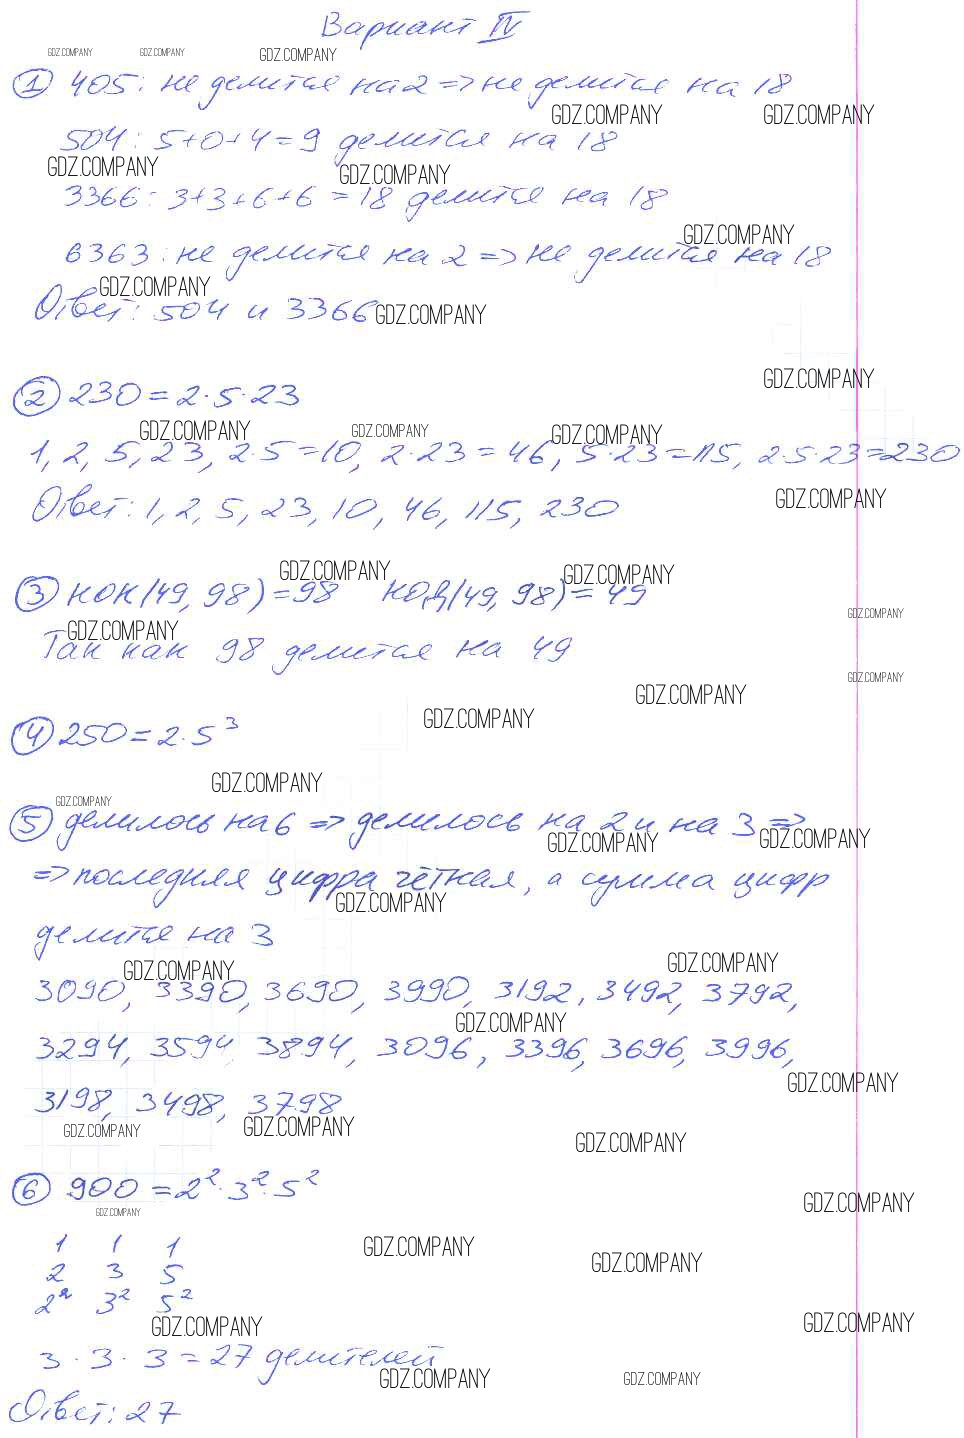 Вариант IV
GDZ.COMPANY GDZ.COMPANY GDZ.COMPANY
① 405: не делится на 2 => не делится на 18
GDZ.COMPANY GDZ.COMPANY
504: 5+0+4=9 делится на 18
GDZ.COMPANY GDZ.COMPANY
3366: 3+3+6+6=18 делится на 18
GDZ.COMPANY
6363: не делится на 2 => не делится на 18
GDZ.COMPANY
Ответ: 504 и 3366
GDZ.COMPANY
GDZ.COMPANY
② 230=2·5·23
GDZ.COMPANY GDZ.COMPANY GDZ.COMPANY
1, 2, 5, 23, 2·5=10, 2·23=46, 5·23=115, 2·5·23=230
GDZ.COMPANY
Ответ: 1, 2, 5, 23, 10, 46, 115, 230
GDZ.COMPANY GDZ.COMPANY
③ НОК(49, 98)=98 НОД(49, 98)=49
GDZ.COMPANY
GDZ.COMPANY
Так как 98 делится на 49
GDZ.COMPANY
GDZ.COMPANY
GDZ.COMPANY
④ 250=2·5³
GDZ.COMPANY
GDZ.COMPANY
⑤ делилось на 6 => делилось на 2 и на 3 =>
GDZ.COMPANY GDZ.COMPANY
=> последняя цифра чётная, а сумма цифр
GDZ.COMPANY
делится на 3
GDZ.COMPANY GDZ.COMPANY
3090, 3390, 3690, 3990, 3192, 3492, 3792,
GDZ.COMPANY
3294, 3594, 3894, 3096, 3396, 3696, 3996,
GDZ.COMPANY
3198, 3498, 3798
GDZ.COMPANY GDZ.COMPANY
GDZ.COMPANY
⑥ 900=2²·3²·5²
GDZ.COMPANY
GDZ.COMPANY
1 1 1
GDZ.COMPANY GDZ.COMPANY
2 3 5
2² 3² 5²
GDZ.COMPANY GDZ.COMPANY
3·3·3=27 делителей
GDZ.COMPANY GDZ.COMPANY
Ответ: 27